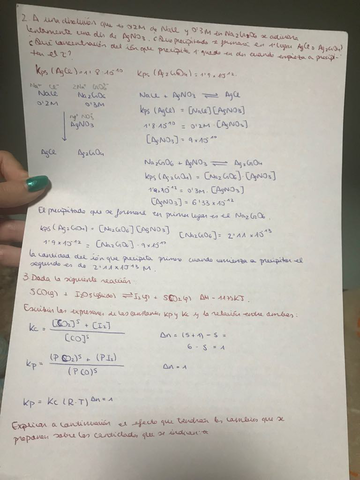 2. A una disolución que es 0'2M de NaCl y 0'3M en Na₂CrO₄ se adiciona
lentamente una dis de AgNO₃. ¿Qué precipitado se formará en 1º lugar AgCl o Ag₂CrO₄?
¿Qué concentración del ión que precipita 1º queda en dis cuando empieza a precipi-
tar el 2º?
Kps (AgCl) = 1'8·10⁻¹⁰ Kps (Ag₂CrO₄) = 1'9·10⁻¹²
Na⁺ Cl⁻
NaCl Na₂CrO₄ NaCl + AgNO₃ ⇌ AgCl
0'2M 0'3M Kps (AgCl) = [NaCl] [AgNO₃]
AgNO₃ 1'8·10⁻¹⁰ = 0'2M · [AgNO₃]
[AgNO₃] = 9·10⁻¹⁰
AgCl Ag₂CrO₄ Na₂CrO₄ + AgNO₃ ⇌ Ag₂CrO₄
Kps (Ag₂CrO₄) = [Na₂CrO₄] · [AgNO₃]
1'9·10⁻¹² = 0'3M · [AgNO₃]
[AgNO₃] = 6'33·10⁻¹²
El precipitado que se formará en primer lugar es el Na₂CrO₄
Kps (Ag₂CrO₄) = [Na₂CrO₄] [AgNO₃]
1'9·10⁻¹² = [Na₂CrO₄] · 9·10⁻¹⁰ [Na₂CrO₄] = 2'11·10⁻³
La cantidad del ión que precipita primero cuando comienza a precipitar el
segundo es de 2'11·10⁻³ M.
3. Dada la siguiente reacción
5CO(g) + I₂O₅(s) ⇌ I₂(g) + 5CO₂(g) ΔH = -1175KJ.
Escribir las expresiones de las constantes Kp y Kc y la relación entre ambas:
Kc = [CO₂]⁵ + [I₂] Δn = (5+1) - 5 =
[CO]⁵ 6 - 5 = 1
Kp = (P CO₂)⁵ + (P I₂) Δn = 1
(P CO)⁵
Kp = Kc (R·T) Δn = 1
Explicar a continuación el efecto que tendrán los cambios que se
proponen sobre las cantidades que se indican =